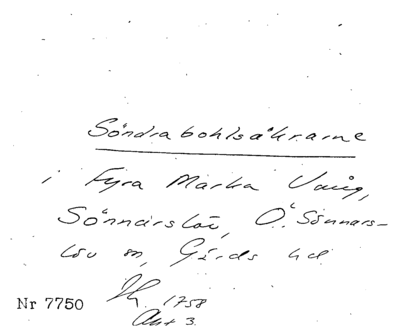 Söndrabohlsåkrarne
i Fyra Marka Vång,
Sönnarslöv, Ö. Sönnars-
löv sn, Gärds hd
1758
Akt 3.
Nr 7750